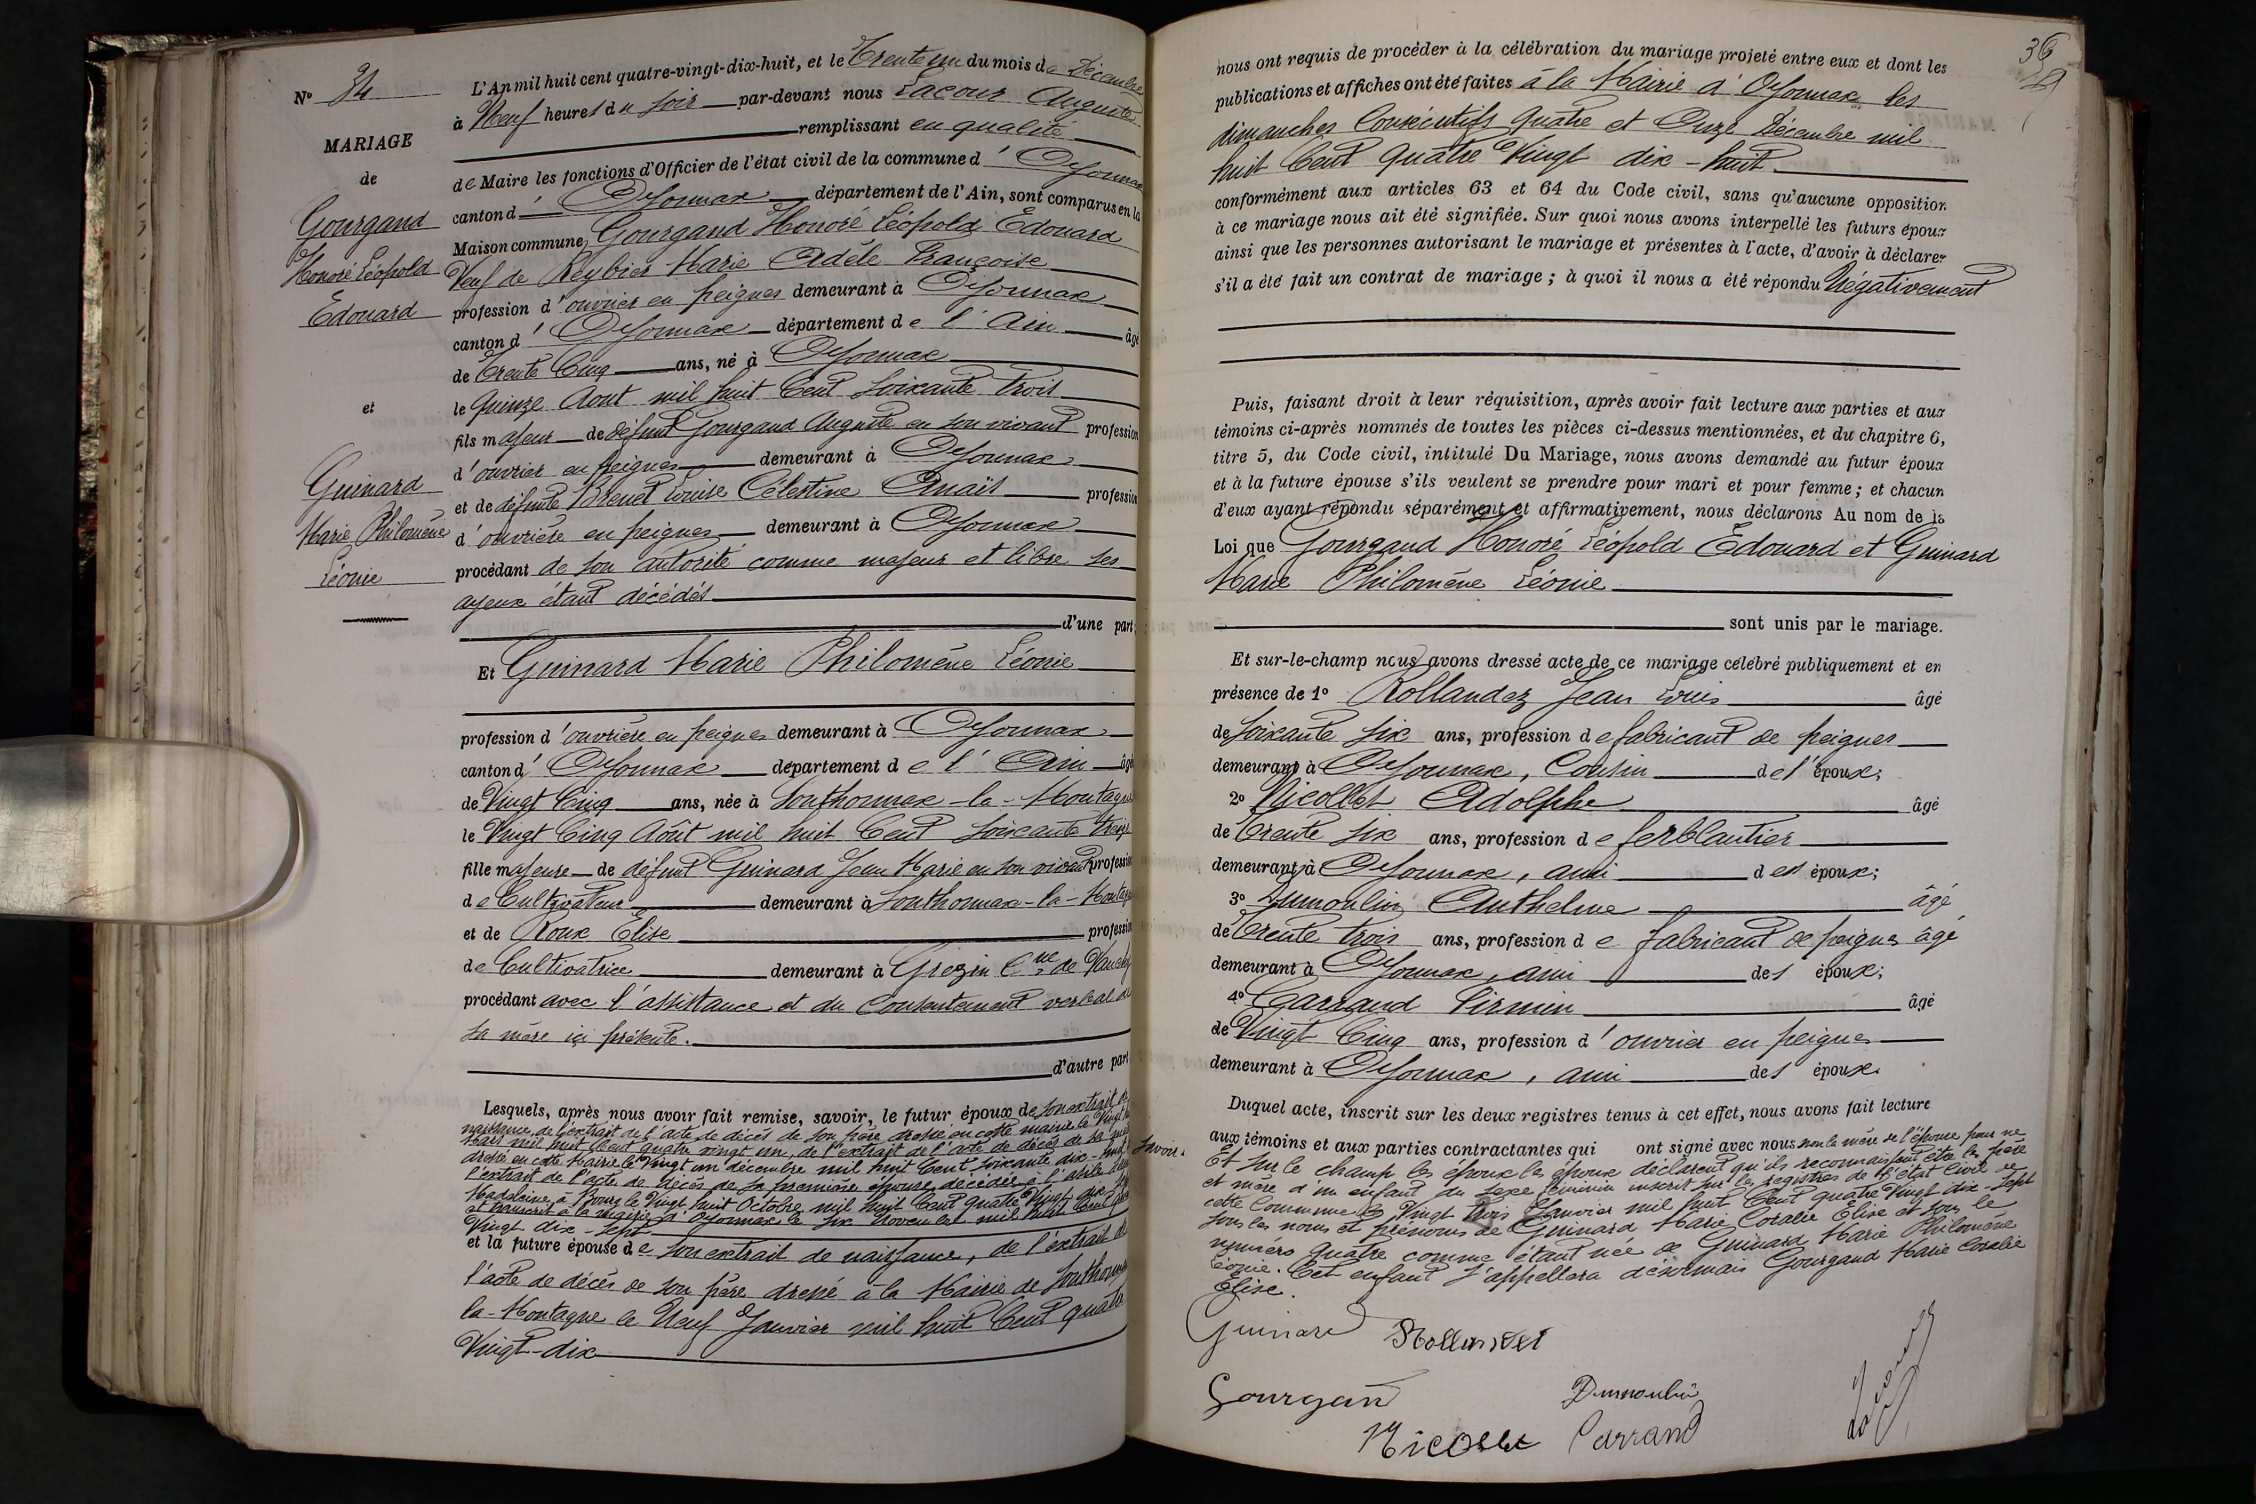 N° 34
MARIAGE
de
Gourgand
Honoré Léopold
Edouard
et
Guinard
Marie Philomène
Léonie
L'An mil huit cent quatre-vingt-dix-huit, et le Trente un du mois de Décembre
à Neuf heures du soir par-devant nous Lacour Auguste
remplissant en qualité
de Maire les fonctions d'Officier de l'état civil de la commune d' Oyonnax
canton d' Oyonnax département de l'Ain, sont comparus en la
Maison commune, Gourgand Honoré Léopold Edouard
Veuf de Reybier Marie Adéle Françoise
profession d'ouvrier en peignes demeurant à Oyonnax
canton d' Oyonnax département de l' Ain âgé
de Trente Cinq ans, né à Oyonnax
le quinze Aout mil huit Cent soixante trois
fils majeur de défunt Gourgand Auguste en son vivant profession
d'ouvrier en peignes demeurant à Oyonnax
et de défunte Brenet Louise Célestine Anaïs profession
d'ouvrière en peignes demeurant à Oyonnax
procédant de son autorité comme majeur et libre ses
ayeux étant décédés
d'une part;
Et Guinard Marie Philomène Léonie
profession d'ouvrière en peignes demeurant à Oyonnax
canton d' Oyonnax département de l' Ain âgé
de Vingt Cinq ans, née à Songthonnax-la-Montagne
le Vingt Cinq Août mil huit Cent soixante treize
fille majeure de défunt Guinard Jean Marie en son vivant profession
de Cultivateur demeurant à Sonthonnax-la-Montagne
et de Roux Elise profession
de Cultivatrice demeurant à Grezin Cne de
procédant avec l'assistance et du Consentement verbal de
sa mère ici présente.
d'autre part
Lesquels, après nous avoir fait remise, savoir, le futur époux de son extrait de
naissance, de l'extrait de l'acte de décès de son père dressé en cette mairie le Vingt
Mars mil huit Cent quatre vingt un, de l'extrait de l'acte de décès de sa mère
dressé en cette Mairie le Vingt un décembre mil huit Cent soixante dix-huit
l'extrait de l'acte de décès de sa première épouse, décédée à l'asile
Madeleine, à Bourg le Vingt huit Octobre mil huit Cent quatre Vingt dix-sept
et transcrit à la mairie d'Oyonnax le six novembre mil huit Cent quatre
Vingt dix-sept
et la future épouse de son extrait de naissance, de l'extrait de
l'acte de décès de son père dressé à la Mairie de Sonthonnax
la-Montagne le Neuf Janvier mil huit Cent quatre
Vingt-dix
nous ont requis de procéder à la célébration du mariage projeté entre eux et dont les
publications et affiches ont été faites à la Mairie d'Oyonnax les
dimanches Consécutifs quatre et Onze Décembre mil
huit Cent quatre Vingt dix-huit.
conformément aux articles 63 et 64 du Code civil, sans qu'aucune opposition
à ce mariage nous ait été signifiée. Sur quoi nous avons interpellé les futurs époux
ainsi que les personnes autorisant le mariage et présentes à l'acte, d'avoir à déclarer
s'il a été fait un contrat de mariage; à quoi il nous a été répondu Négativement
Puis, faisant droit à leur réquisition, après avoir fait lecture aux parties et aux
témoins ci-après nommés de toutes les pièces ci-dessus mentionnées, et du chapitre 6,
titre 5, du Code civil, intitulé Du Mariage, nous avons demandé au futur époux
et à la future épouse s'ils veulent se prendre pour mari et pour femme; et chacun
d'eux ayant répondu séparément et affirmativement, nous déclarons Au nom de la
Loi que Gourgand Honoré Léopold Edouard et Guinard
Marie Philomène Léonie
sont unis par le mariage.
Et sur-le-champ nous avons dressé acte de ce mariage célébré publiquement et en
présence de 1° Rollandez Jean Louis âgé
de soixante six ans, profession de fabricant de peignes
demeurant à Oyonnax, Cousin de l'époux;
2° Nicollet Adolphe âgé
de trente six ans, profession de ferblantier
demeurant à Oyonnax, ami des époux;
3° Dumoulin Anthelme âgé
de trente trois ans, profession de fabricant de peignes âgé
demeurant à Oyonnax, ami des époux;
4° Carrand Firmin âgé
de Vingt Cinq ans, profession d'ouvrier en peignes
demeurant à Oyonnax, ami des époux.
Duquel acte, inscrit sur les deux registres tenus à cet effet, nous avons fait lecture
aux témoins et aux parties contractantes qui ont signé avec nous non la mère de l'épouse pour ne
savoir.
Et sur le champ les époux les époux déclarent qu'ils reconnaissent être les père
et mère d'un enfant du sexe féminin inscrit sur les registres de l'état Civil de
cette Commune le Vingt trois Janvier mil huit Cent quatre Vingt dix-sept
sous les noms et prénoms de Guinard Marie Coralie Elise et sous le
numéro quatre comme étant née de Guinard Marie Philomène
Léonie. Cet enfant s'appellera désormais Gourgand Marie Coralie
Elise.
Guinard Rollandet
Gourgand Dumoulin
Nicollet Carrand
Lacour